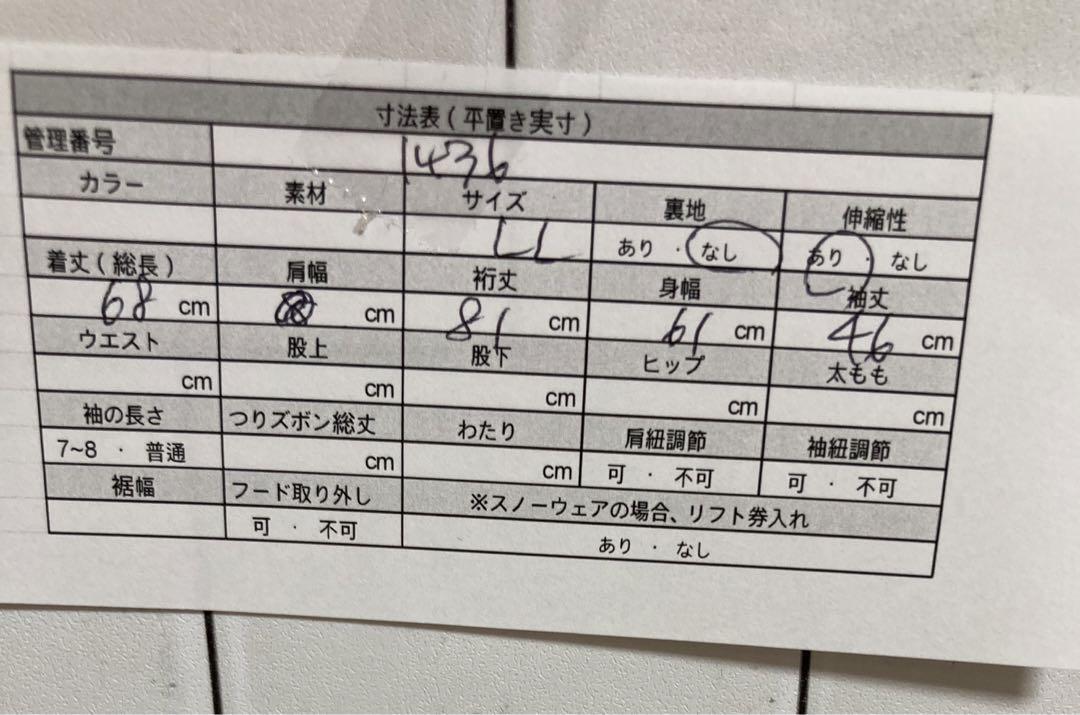 寸法表(平置き実寸)
管理番号 1436
カラー 素材 サイズ 裏地 伸縮性
LL あり ・ なし あり ・ なし
着丈(総長) 肩幅 裄丈 身幅 袖丈
68 cm cm 81 cm 61 cm 46 cm
ウエスト 股上 股下 ヒップ 太もも
cm cm cm cm cm
袖の長さ つりズボン総丈 わたり 肩紐調節 袖紐調節
7~8 ・ 普通 cm cm 可 ・ 不可 可 ・ 不可
裾幅 フード取り外し ※スノーウェアの場合、リフト券入れ
可 ・ 不可 あり ・ なし